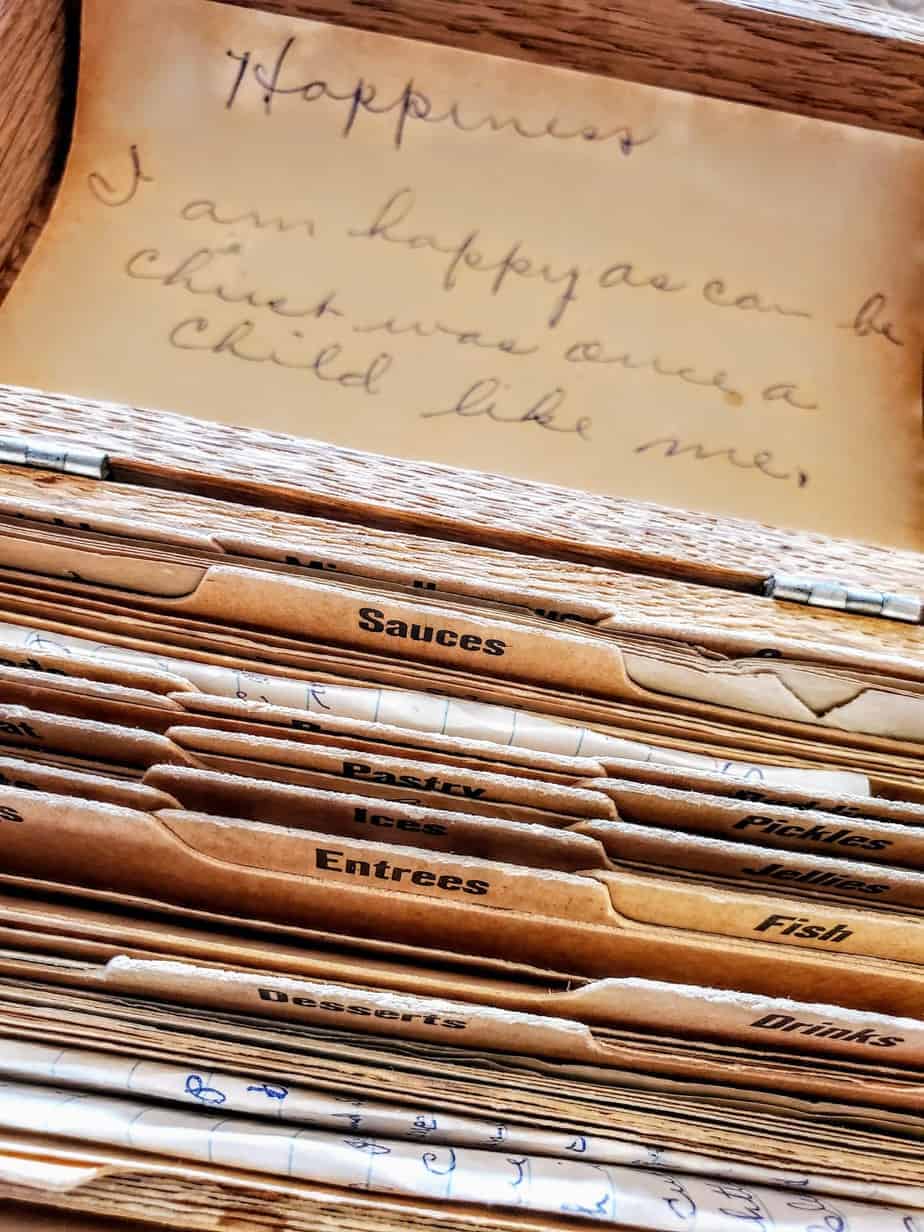 Happiness
I am happy as can be
Christ was once a
child like me.
Sauces
Pastry
Pickles
Ices
Jellies
Entrees
Fish
Desserts
Drinks